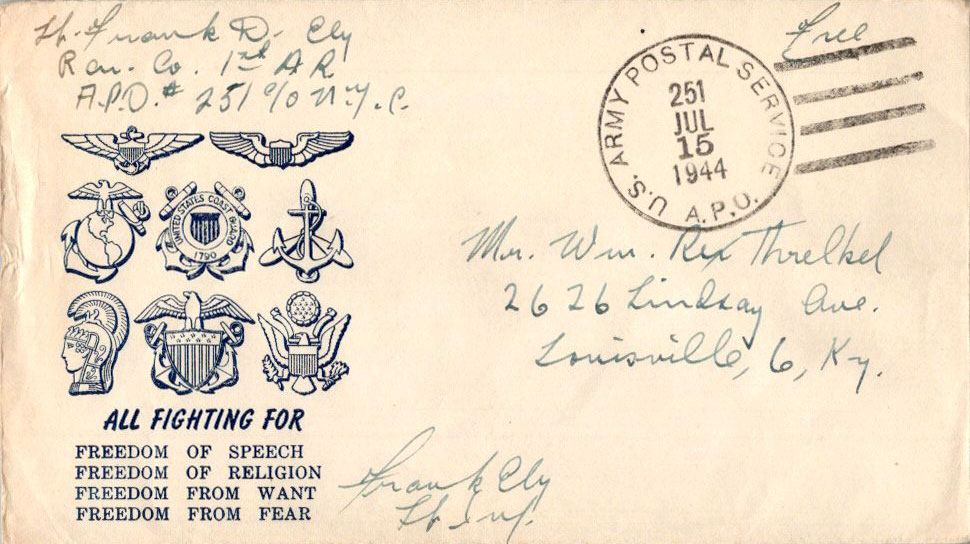 Lt. Frank D. Ely
Rcn. Co. 1st A R
A.P.O. # 251 c/o N.Y.C.
Free
U.S. ARMY POSTAL SERVICE
A.P.O.
251
JUL
15
1944
UNITED STATES COAST GUARD
1790
Mr. Wm. Rex Threlkel
2626 Lindsay Ave.
Louisville, 6, Ky.
ALL FIGHTING FOR
FREEDOM OF SPEECH
FREEDOM OF RELIGION
FREEDOM FROM WANT
FREEDOM FROM FEAR
Frank Ely
Lt. Inf.